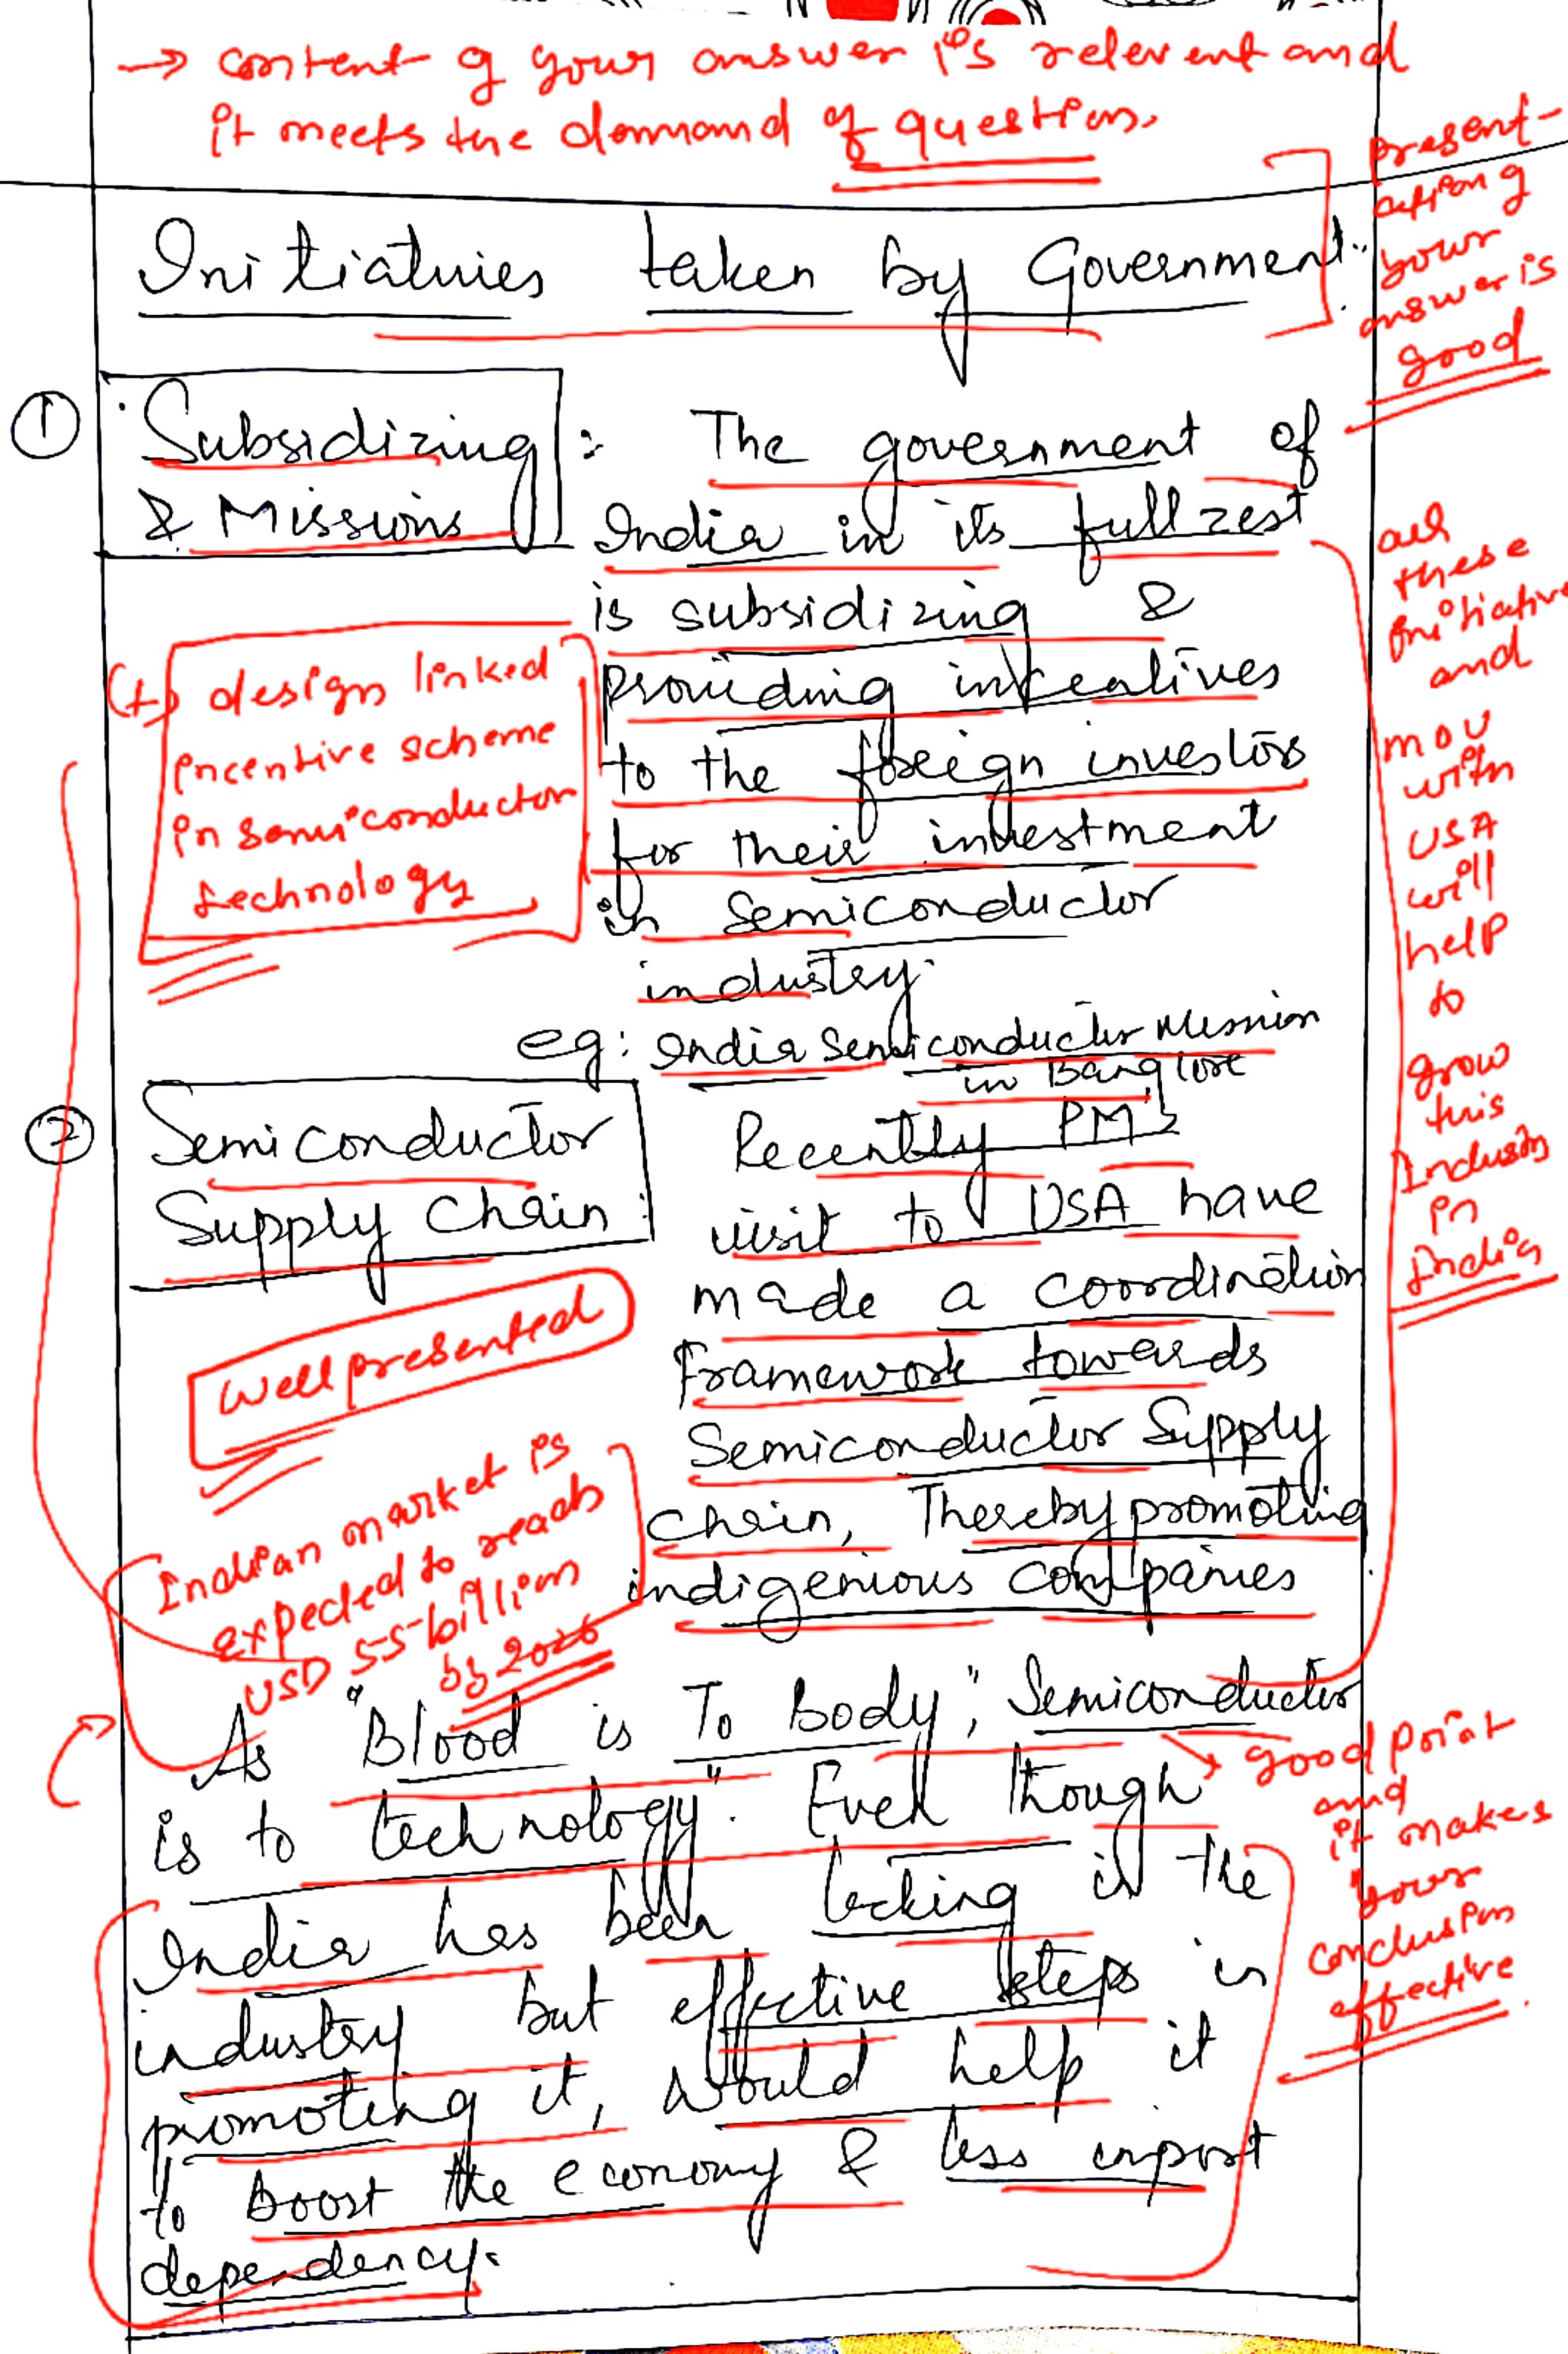 → content of your answer is relevent and
it meets the demand of question.
present-
ation of
your
answer is
good
Initiatives taken by Government:
① Subsidizing
& Missions
: The government of
India in its full zest
is subsidizing &
providing incentives
to the foreign investors
for their investment
in Semiconductor
industry.
eg: India Semiconductor Mission
in Banglore
(+) design linked
incentive scheme
in semiconductor
technology
all
these
initiative
and
MOU
with
USA
will
help
to
grow
this
Industry
in
India
② Semiconductor
Supply Chain:
Recently PM's
visit to USA have
made a coordination
framework towards
Semiconductor Supply
chain, Thereby promoting
indigenious companies
Well presented
Indian market is
expected to reach
USD 55 billion
by 2026
As "Blood is To Body; Semiconductor
is to technology". Even though
India has been lacking in the
industry but effective steps in
promoting it, would help it
to boost the economy & less import
dependency.
→ good point
and
it makes
your
conclusion
effective.